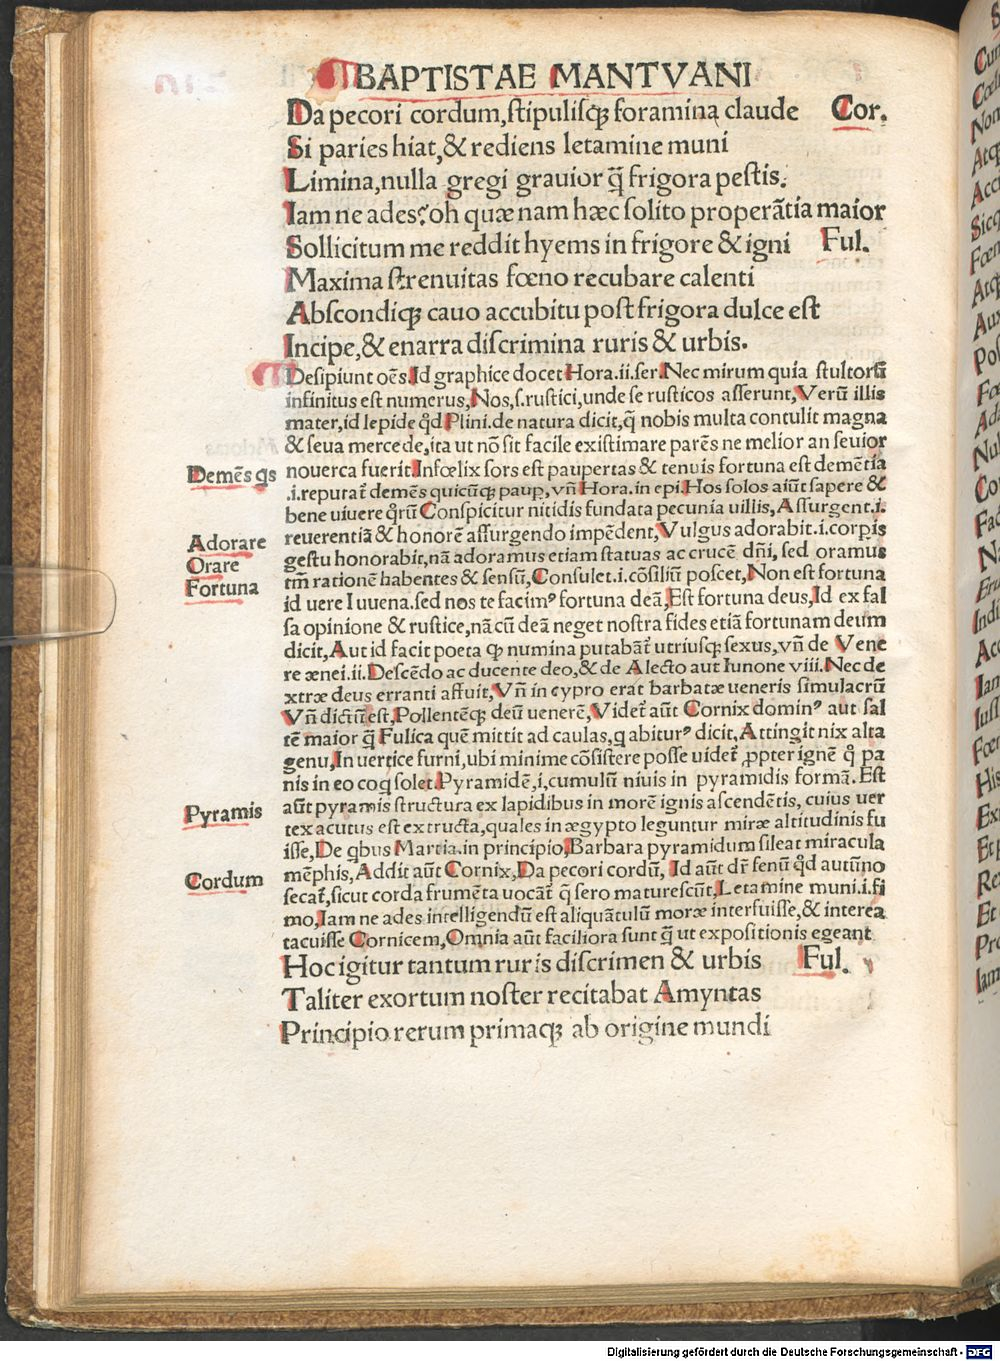 BAPTISTAE MANTVANI
Da pecori cordum, ſtipuliſqꝫ foramina claude Cor.
Si paries hiat, & rediens letamine muni
Limina, nulla gregi grauior q̃ frigora peſtis.
Iam ne ades? oh quæ nam hæc ſolito properãtia maior
Sollicitum me reddit hyems in frigore & igni Ful.
Maxima ſtrenuitas fœno recubare calenti
Abſcondiqꝫ cauo accubitu poſt frigora dulce eſt
Incipe, & enarra diſcrimina ruris & urbis.
Deſipiunt oẽs. Id graphice docet Hora. ii. ſer. Nec mirum quia ſtultorũ
infinitus eſt numerus, Nos, ſ. ruſtici, unde ſe ruſticos aſſerunt, Verũ illis
mater, id lepide qd̓ Plini. de natura dicit, q̨ nobis multa contulit magna
& ſeua mercede, ita ut nõ ſit facile exiſtimare parẽs ne melior an ſeuior
Demẽs qs nouerca fuerit. Infœlix ſors eſt paupertas & tenuis fortuna eſt demẽtia
.i. reputat̃ demẽs quicũqꝫ paup, vñ Hora. in epi. Hos ſolos aiũt ſapere &
bene uiuere qrũ Conſpicitur nitidis fundata pecunia uillis, Aſſurgent .i.
Adorare reuerentiã & honorẽ aſſurgendo impẽdent, Vulgus adorabit .i. corpis
Orare geſtu honorabit, nã adoramus etiam ſtatuas ac crucẽ dñi, ſed oramus
Fortuna tm̃ rationẽ habentes & ſenſũ, Conſulet .i. cõſiliũ poſcet, Non eſt fortuna
id uere Iuuena. ſed nos te facimꝰ fortuna deã, Eſt fortuna deus, Id ex fal
ſa opinione & ruſtice, nã cũ deã neget noſtra fides etiã fortunam deum
dicit, Aut id facit poeta qꝫ numina putabãt̃ utriuſqꝫ ſexus, vñ de Vene
re ænei. ii. Deſcẽdo ac ducente deo, & de Alecto aut Iunone viii. Nec de
xtræ deus erranti affuit, Vñ in cypro erat barbatæ ueneris ſimulacrũ
Vñ dictũ eſt, Pollentẽqꝫ deũ uenerẽ, Videt̃ aũt Cornix dominꝰ aut ſal
tẽ maior q̃ Fulica quẽ mittit ad caulas, q abiturꝰ dicit, Attingit nix alta
genu, In uertice furni, ubi minime cõſiſtere poſſe uidet̃ ꝓpter ignẽ q̓ pa
nis in eo coq ſolet. Pyramidẽ, i, cumulũ niuis in pyramidis formã. Eſt
Pyramis aũt pyramis ſtructura ex lapidibus in morẽ ignis aſcendẽtis, cuius uer
tex acutus eſt extructa, quales in ægypto leguntur miræ altitudinis fu
iſſe, De qbus Martia. in principio, Barbara pyramidum ſileat miracula
Cordum mẽphis, Addit aũt Cornix, Da pecori cordũ, Id aũt dr̃ fenũ qd̓ autũno
ſecat̃, ſicut corda frumẽta uocãt̃ q̨ ſero matureſcũt, Letamine muni .i. fi
mo, Iam ne ades intelligendũ eſt aliquãtulũ moræ interfuiſſe, & interea
tacuiſſe Cornicem, Omnia aũt faciliora ſunt q̃ ut expoſitionis egeant
Hoc igitur tantum ruris diſcrimen & urbis Ful.
Taliter exortum noſter recitabat Amyntas
Principio rerum primaqꝫ ab origine mundi
Digitalisierung gefördert durch die Deutsche Forschungsgemeinschaft - DFG